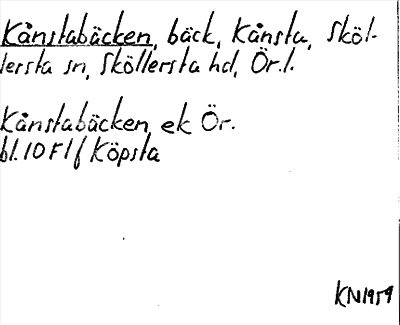 Kånstabäcken, bäck, Kånsta, Sköl-
lersta sn, Sköllersta hd, Ör.l.
Kånstabäcken, ek Ör.
bl. 10 F 1 f Köpsta
KN 1959